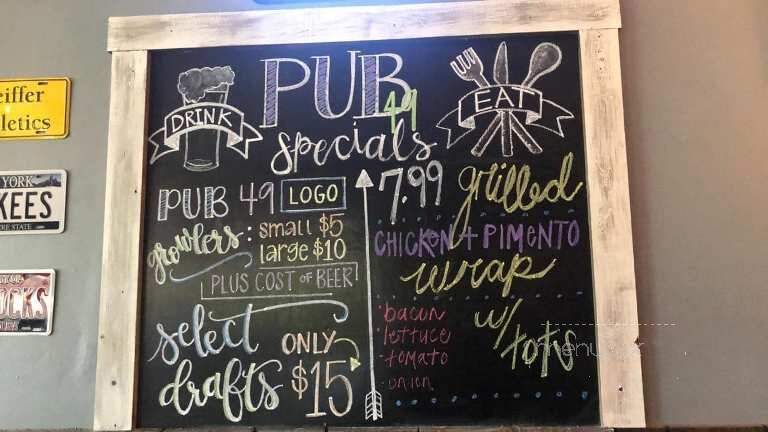 eiffer
letics
YORK
KEES
RE STATE
CKS
PUB
49
specials
DRINK
EAT
PUB 49 LOGO
growlers: small $5
large $10
PLUS COST of BEER
select
drafts
ONLY
$15
7.99 grilled
CHICKEN + PIMENTO
wrap
w/
tots
bacon
lettuce
tomato
onion